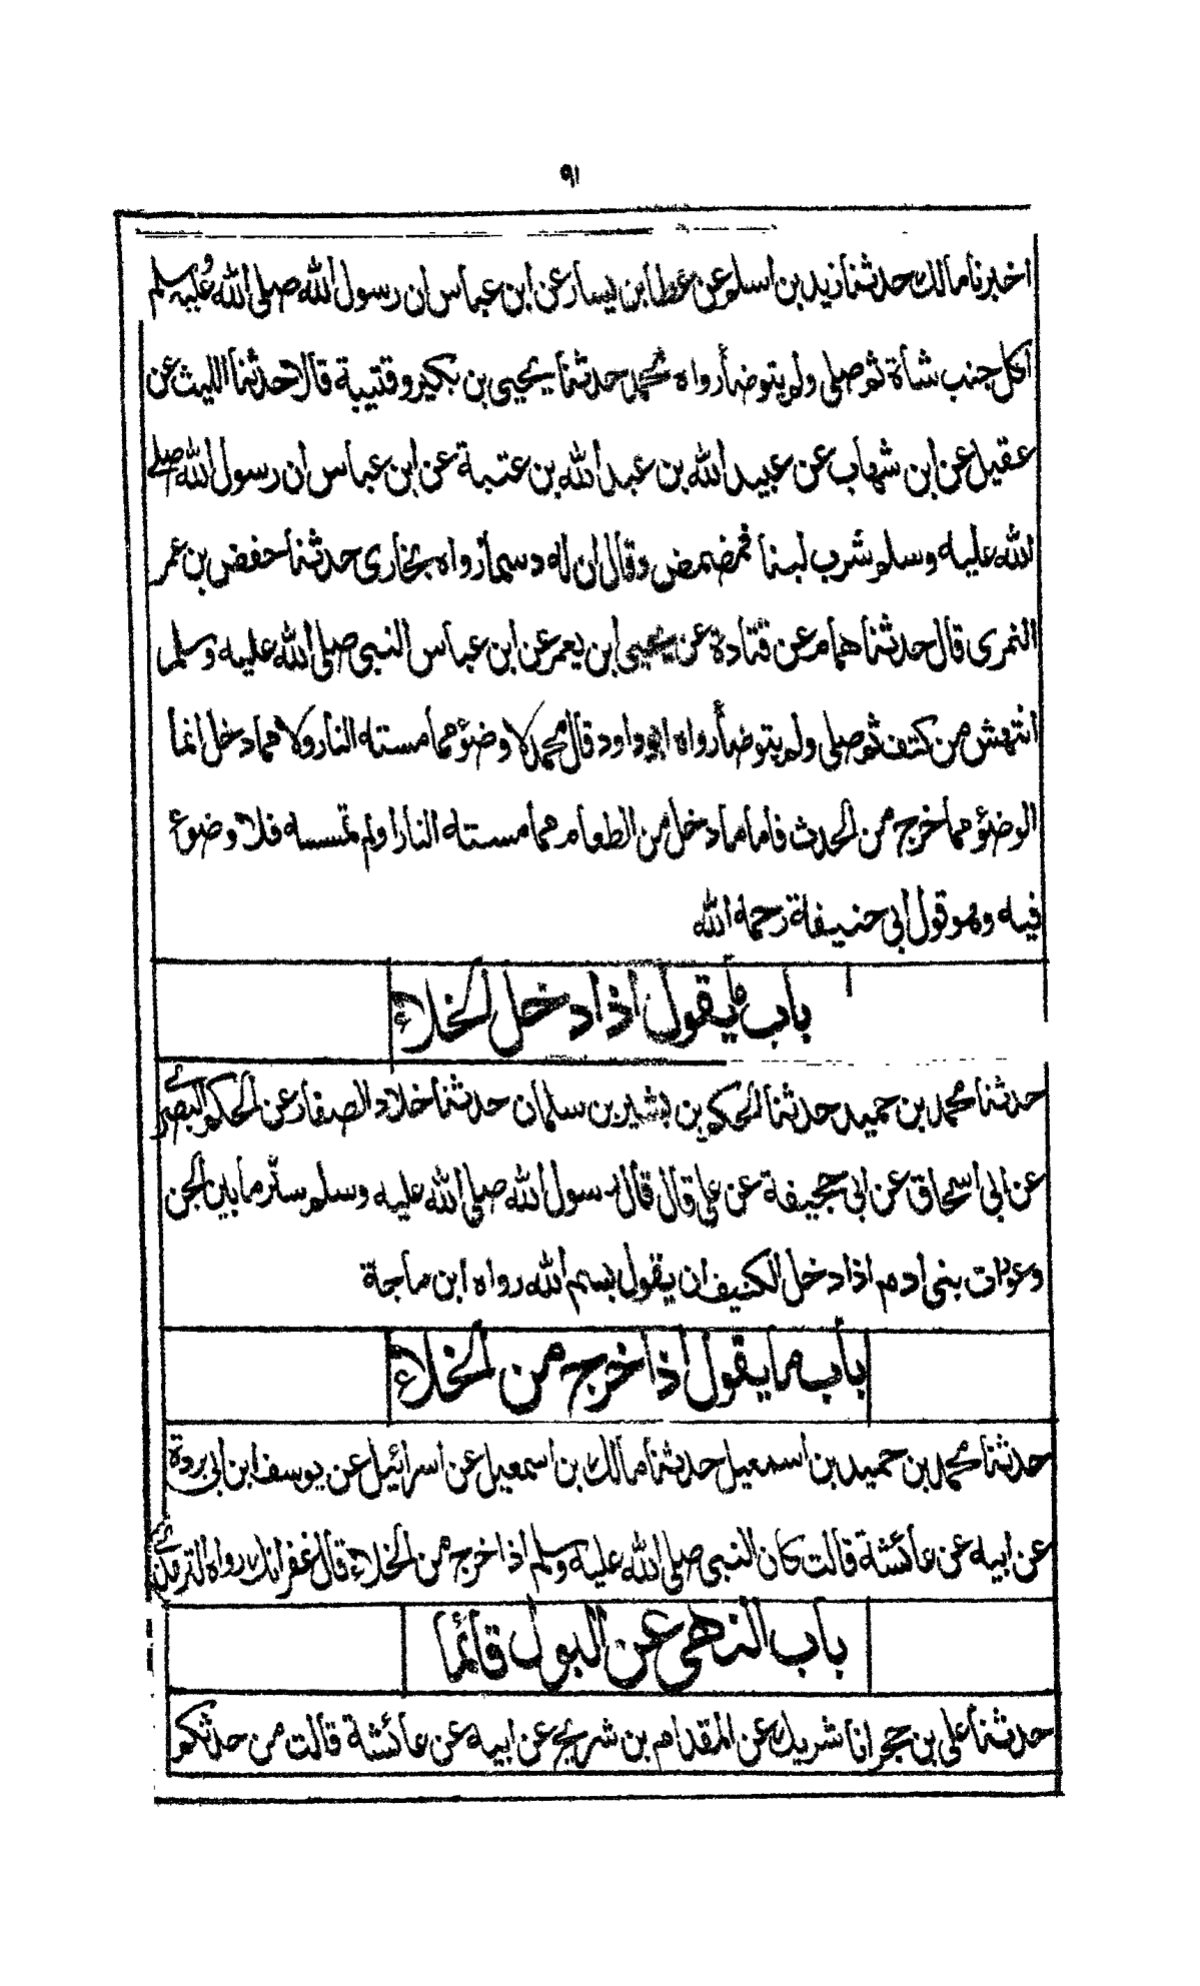 ٩١
اخبرنا مالك حدثنا زيد بن اسلم عن عطا بن يسار عن ابن عباس ان رسول الله صلى الله عليه وسلم
اكل جنب شاة ثم صلى ولم يتوضأ رواه محمد حدثنا يحيى بن بكير وقتيبة قالا حدثنا الليث عن
عقيل عن ابن شهاب عن عبيد الله بن عبد الله بن عتبة عن ابن عباس ان رسول الله صلى
الله عليه وسلم شرب لبنا فمضمض وقال ان له دسما رواه بخارى حدثنا حفض بن عمر
النمرى قال حدثنا همام عن قتادة عن يحيى ابن يعمر عن ابن عباس النبى صلى الله عليه وسلم
انتهش من كتف ثم صلى ولم يتوضأ رواه ابوداود قال محمد لا وضؤ مما مسته النار ولا مما دخل انما
الوضؤ مما خرج من الحدث فاما ما دخل من الطعام مما مسته النار او لم تمسسه فلا وضوء
فيه وهو قول ابى حنيفة رحمه الله
باب ما يقول اذا دخل الخلاء
حدثنا محمد بن حميد حدثنا الحكم بن بشير بن سلمان حدثنا خلاد الصفار عن الحكم البصرى
عن ابى اسحاق عن ابى جحيفة عن على قال قال رسول الله صلى الله عليه وسلم ستر ما بين الجن
وعورات بنى ادم اذا دخل الكنيف ان يقول بسم الله رواه ابن ماجة
باب ما يقول اذا خرج من الخلاء
حدثنا محمد بن حميد بن اسمعيل حدثنا مالك بن اسمعيل عن اسرائيل عن يوسف ابن ابى بردة
عن ابيه عن عائشة قالت كان النبى صلى الله عليه وسلم اذا خرج من الخلاء قال غفرانك رواه الترمذى
باب النهى عن البول قائما
حدثنا على بن حجر انا شريك عن المقدام بن شريح عن ابيه عن عائشة قالت من حدثكم